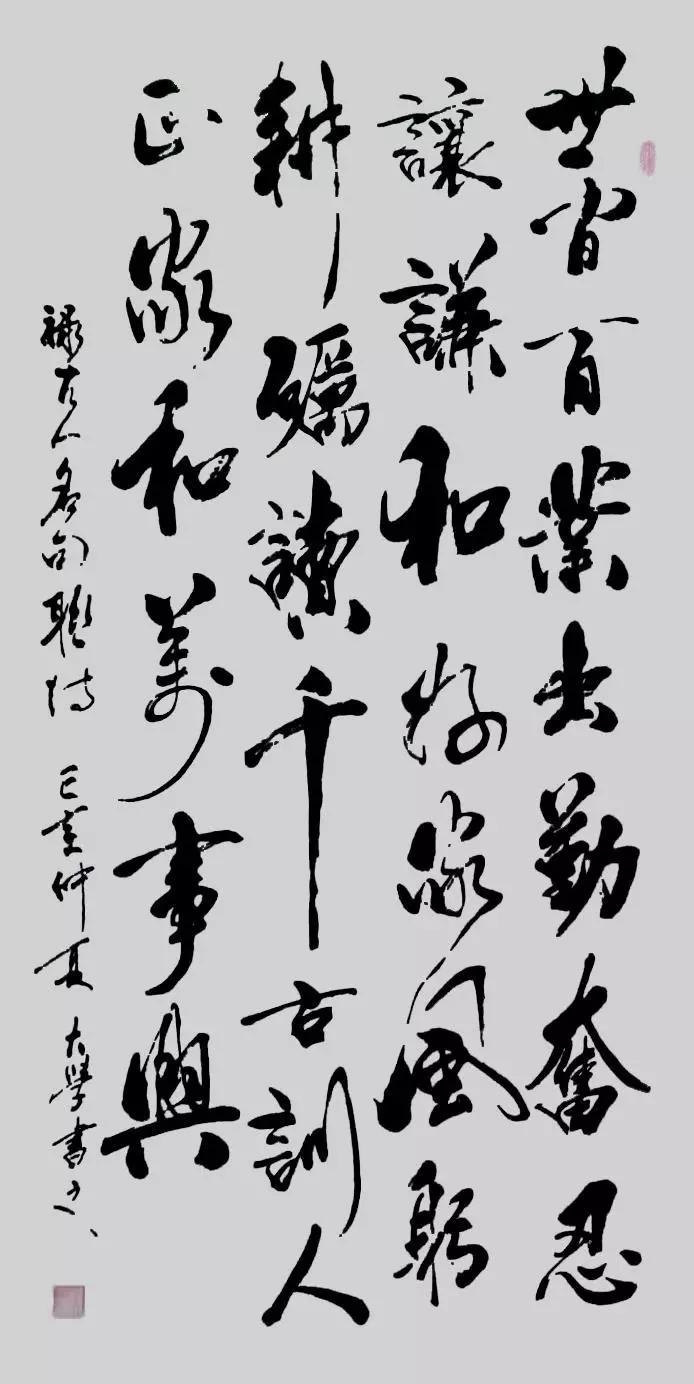 世間百業出勤奮忍
讓謙和好家風躬
耕礪讀千古訓人
正家和萬事興
錄古人名句聯詩 己亥仲夏 大學書之